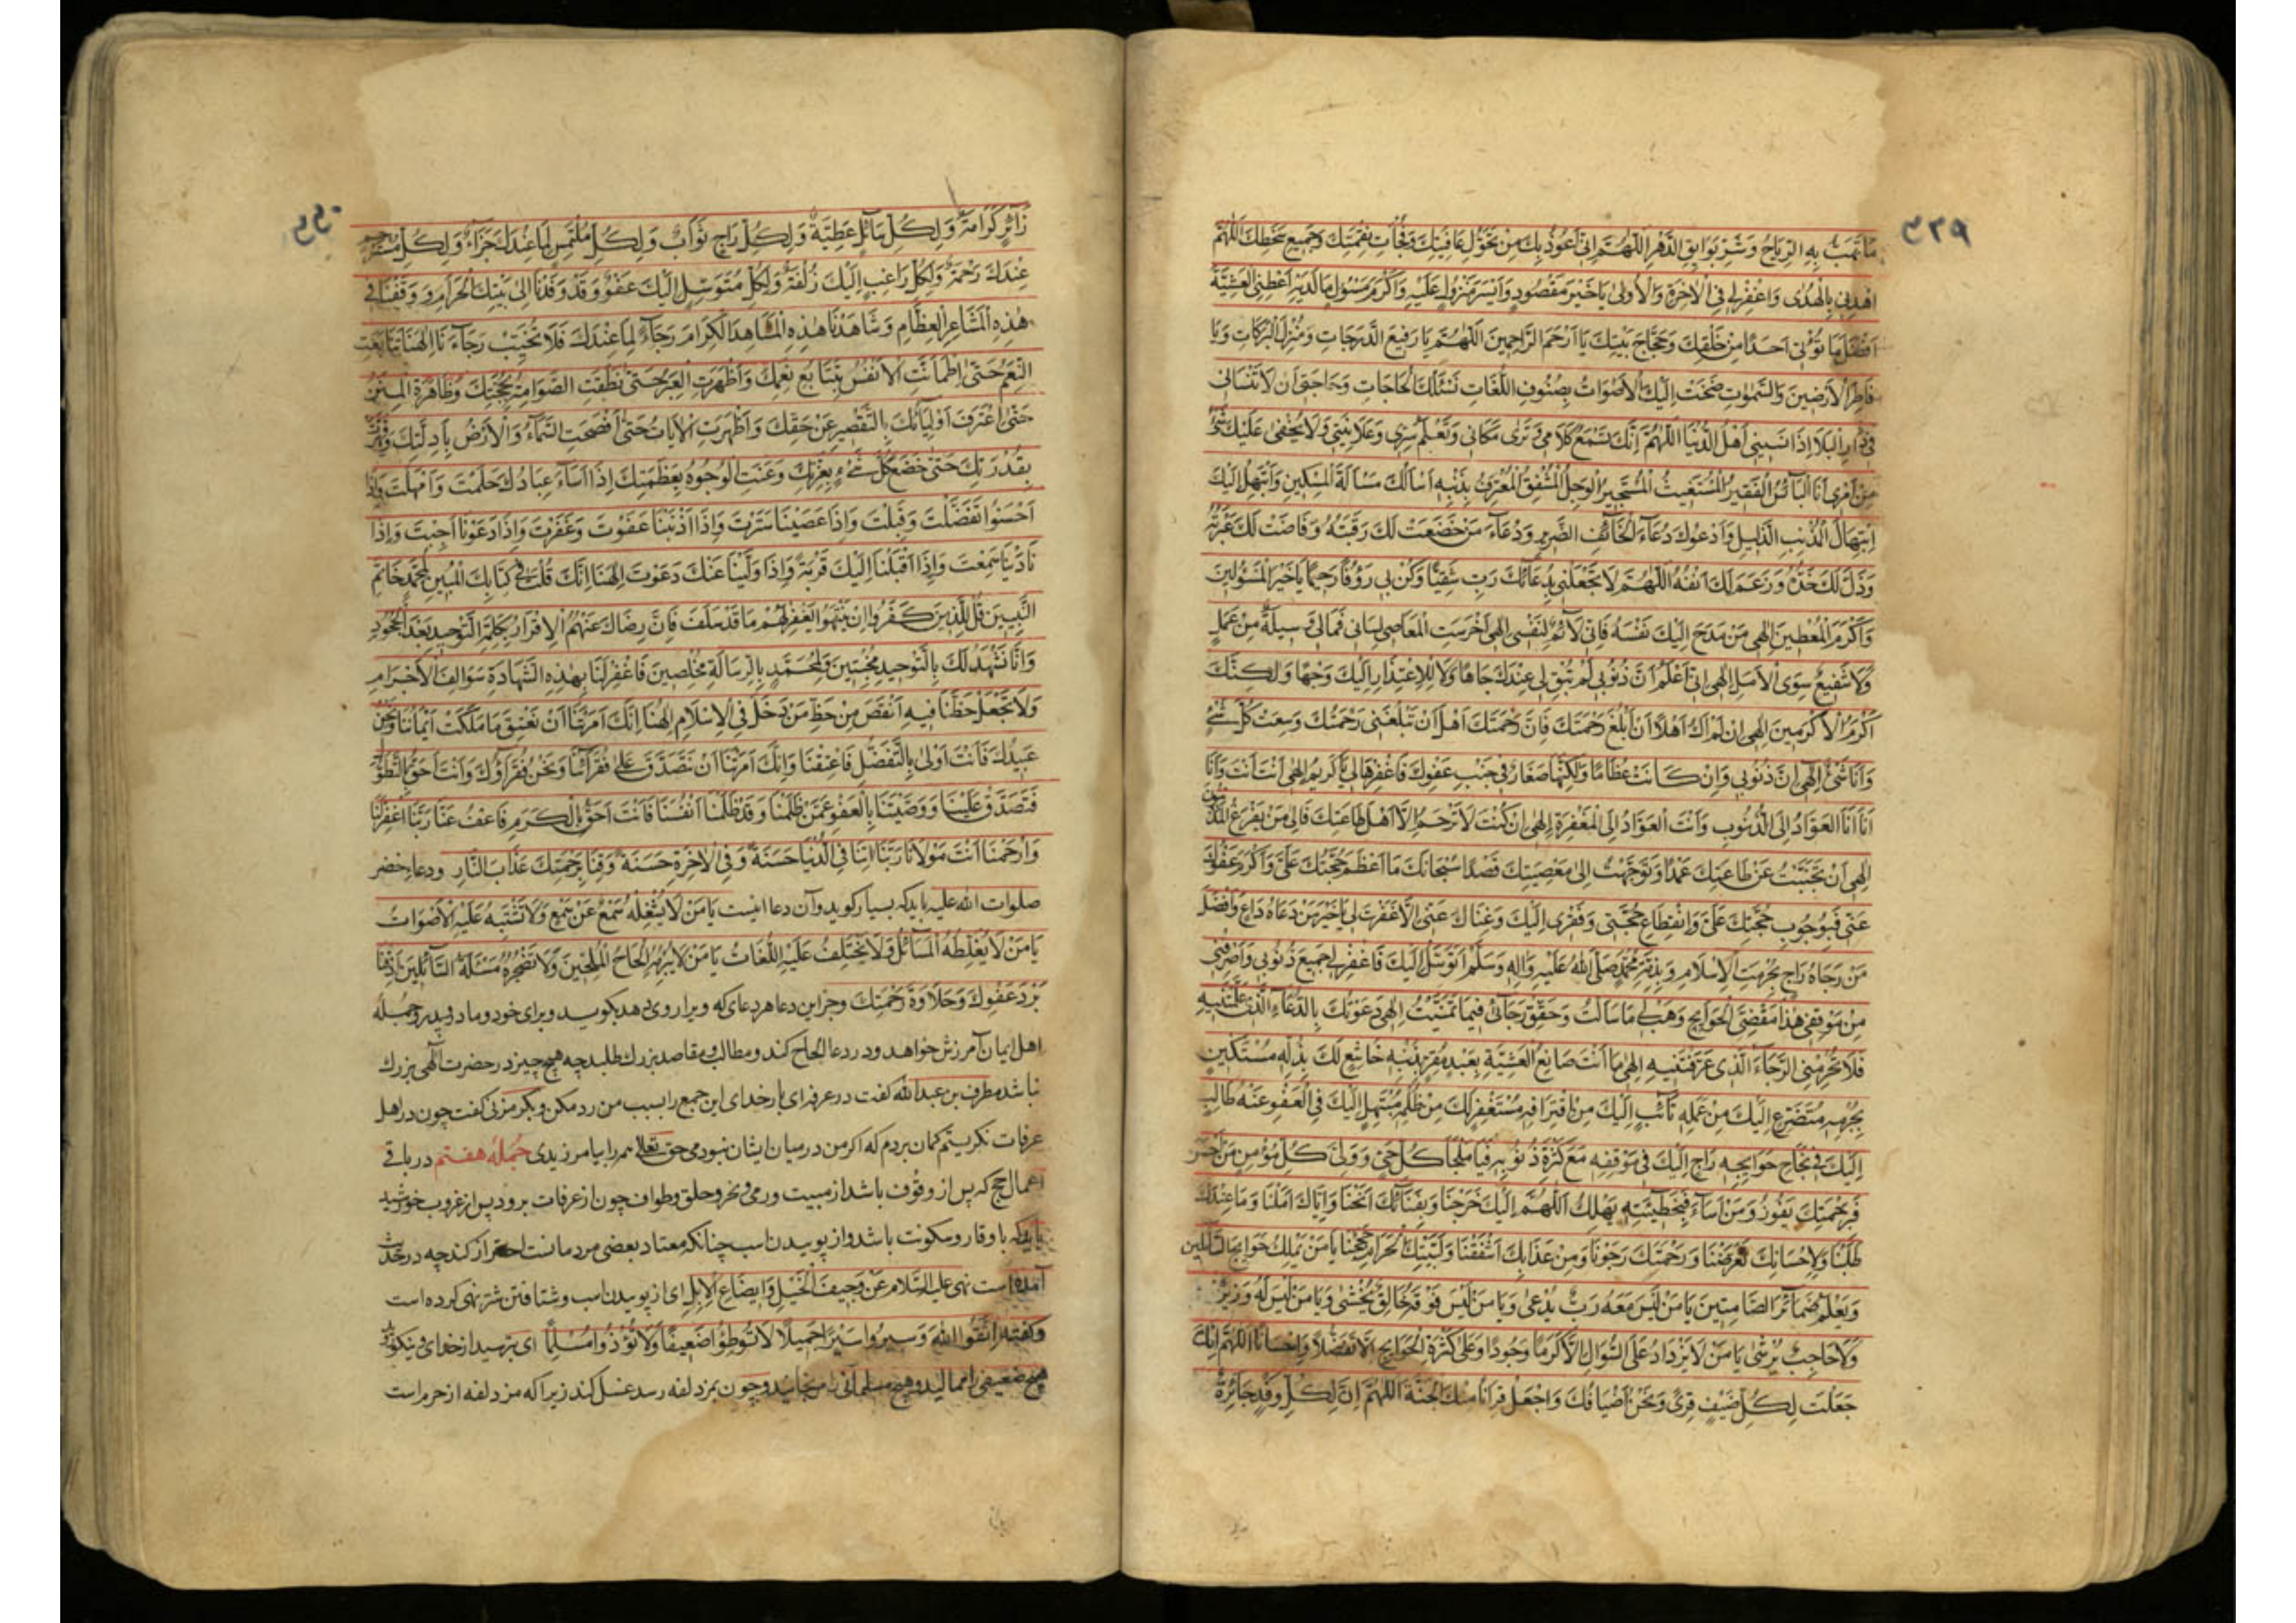 ۴۳۹
مَا تَهُبُّ بِهِ الرِّيَاحُ وَشَرِّ بَوَايِقِ الدَّهْرِ اللّٰهُمَّ اِنِّى اَعُوذُ بِكَ مِنْ تَحَوُّلِ عَافِيَتِكَ وَفُجَاْتِ نِقْمَتِكَ وَجَمِيعِ سَخَطِكَ اَللّٰهُمَّ
اهْدِنِى بِالْهُدٰى وَاغْفِرْلِى فِى الْاٰخِرَةِ وَالْاُولٰى يَا خَيْرَ مَقْصُودٍ وَاَيْسَرَ مَنْزُولٍ عَلَيْهِ وَاَكْرَمَ مَسْئُولٍ مَا لَدَيْهِ اَعْطِنِى الْعَشِيَّةَ
اَفْضَلَ مَا تُؤْتِى اَحَدًا مِنْ خَلْقِكَ وَحُجَّاجِ بَيْتِكَ يَا اَرْحَمَ الرَّاحِمِينَ اَللّٰهُمَّ يَا رَفِيعَ الدَّرَجَاتِ وَمُنْزِلَ الْبَرَكَاتِ وَيَا
فَاطِرَ الْاَرَضِينَ وَالسَّمٰوَاتِ ضَجَّتْ اِلَيْكَ الْاَصْوَاتُ بِصُنُوفِ اللُّغَاتِ نَسْئَلُكَ الْحَاجَاتِ وَحَاجَتِى اَنْ لَا تَنْسَانِى
فِى دَارِ الْبَلَا اِذَا نَسِيَنِى اَهْلُ الدُّنْيَا اَللّٰهُمَّ اِنَّكَ تَسْمَعُ كَلَامِى وَتَرٰى مَكَانِى وَتَعْلَمُ سِرِّى وَعَلَانِيَتِى وَلَا يَخْفٰى عَلَيْكَ شَىْءٌ
مِنْ اَمْرِى اَنَا الْبَائِسُ الْفَقِيرُ الْمُسْتَغِيثُ الْمُسْتَجِيرُ الْوَجِلُ الْمُشْفِقُ الْمُعْتَرِفُ بِذَنْبِهِ اَسْاَلُكَ مَسْاَلَةَ الْمِسْكِينِ وَاَبْتَهِلُ اِلَيْكَ
اِبْتِهَالَ الْمُذْنِبِ الذَّلِيلِ وَاَدْعُوكَ دُعَاءَ الْخَائِفِ الضَّرِيرِ وَدُعَاءَ مَنْ خَضَعَتْ لَكَ رَقَبَتُهُ وَفَاضَتْ لَكَ عَبْرَتُهُ
وَذَلَّ لَكَ خَدُّهُ وَرَغِمَ لَكَ اَنْفُهُ اَللّٰهُمَّ لَا تَجْعَلْنِى بِدُعَائِكَ رَبِّ شَقِيًّا وَكُنْ بِى رَؤُفًا رَحِيمًا يَا خَيْرَ الْمَسْئُولِينَ
وَاَكْرَمَ الْمُعْطِينَ اِلٰهِى مَنْ مَدَحَ اِلَيْكَ نَفْسَهُ فَاِنِّى لَائِمٌ لِنَفْسِى اِلٰهِى اَخْرَسَتِ الْمَعَاصِى لِسَانِى فَمَا لِى وَسِيلَةٌ مِنْ عَمَلٍ
وَلَا شَفِيعٌ سِوَى الْاَمَلِ اِلٰهِى اِنِّى اَعْلَمُ اَنَّ ذُنُوبِى لَمْ تُبْقِ لِى عِنْدَكَ جَاهًا وَلَا لِلْاِعْتِذَارِ اِلَيْكَ وَجْهًا وَلٰكِنَّكَ
اَكْرَمُ الْاَكْرَمِينَ اِلٰهِى اِنْ لَمْ اَكُ اَهْلًا اَنْ اَبْلُغَ رَحْمَتَكَ فَاِنَّ رَحْمَتَكَ اَهْلٌ اَنْ تَبْلُغَنِى رَحْمَتُكَ وَسِعَتْ كُلَّ شَىْءٍ
وَاَنَا شَىْءٌ اِلٰهِى اِنَّ ذُنُوبِى وَاِنْ كَانَتْ عِظَامًا وَلٰكِنَّهَا صِغَارٌ فِى جَنْبِ عَفْوِكَ فَاغْفِرْهَا لِى يَا كَرِيمُ اِلٰهِى اَنْتَ اَنْتَ وَاَنَا
اَنَا اَنَا الْعَوَّادُ اِلَى الذُّنُوبِ وَاَنْتَ الْعَوَّادُ اِلَى الْمَغْفِرَةِ اِلٰهِى اِنْ كُنْتَ لَا تَرْحَمُ اِلَّا اَهْلَ طَاعَتِكَ فَاِلٰى مَنْ يَفْزَعُ الْمُذْنِبُونَ
اِلٰهِى اَنْ تَجَنَّبْتُ عَنْ طَاعَتِكَ عَمْدًا وَتَوَجَّهْتُ اِلٰى مَعْصِيَتِكَ قَصْدًا سُبْحَانَكَ مَا اَعْظَمَ حُجَّتَكَ عَلَىَّ وَاَكْرَمَ عَفْوَكَ
عَنِّى فَبِوُجُوبِ حُجَّتِكَ عَلَىَّ وَانْقِطَاعِ حُجَّتِى وَفَقْرِى اِلَيْكَ وَغِنَاكَ عَنِّى اِلَّا غَفَرْتَ لِى يَا خَيْرَ مَنْ دَعَاهُ دَاعٍ وَاَفْضَلَ
مَنْ رَجَاهُ رَاجٍ بِحُرْمَتِ الْاِسْلَامِ وَبِذِمَّةِ مُحَمَّدٍ صَلَّى اللّٰهُ عَلَيْهِ وَاٰلِهِ وَسَلَّمَ اَتَوَسَّلُ اِلَيْكَ فَاغْفِرْ لِى جَمِيعَ ذُنُوبِى وَاصْرِفْنِى
مِنْ مَوْقِفِى هٰذَا مَقْضِىَّ الْحَوَائِجِ وَهَبْ لِى مَا سَاَلْتُ وَحَقِّقْ رَجَائِى فِيمَا تَمَنَّيْتُ اِلٰهِى دَعَوْتُكَ بِالدُّعَاءِ الَّذِى عَلَّمْتَنِيهِ
فَلَا تَحْرِمْنِى الرَّجَاءَ الَّذِى عَرَّفْتَنِيهِ اِلٰهِى مَا اَنْتَ صَانِعٌ الْعَشِيَّةَ بِعَبْدٍ مُقِرٍّ بِذَنْبِهِ خَاشِعٍ لَكَ بِذِلَّتِهِ مُسْتَكِينٍ
بِجُرْمِهِ مُتَضَرِّعٍ اِلَيْكَ مِنْ عَمَلِهِ تَائِبٍ اِلَيْكَ مِنْ اقْتِرَافِهِ مُسْتَغْفِرٍ لَكَ مِنْ ظُلْمِهِ مُبْتَهِلٍ اِلَيْكَ فِى الْعَفْوِ عَنْهُ طَالِبٍ
اِلَيْكَ فِى نَجَاحِ حَوَايِجِهِ رَاجٍ اِلَيْكَ فِى مَوْقِفِهِ مَعَ كَثْرَةِ ذُنُوبِهِ فَيَا مَلْجَاَ كُلِّ حَىٍّ وَوَلِىَّ كُلِّ مُؤْمِنٍ مَنْ اَحْسَنَ
فَبِرَحْمَتِكَ يَفُوزُ وَمَنْ اَسَاءَ فَبِخَطِيئَتِهِ يَهْلِكُ اَللّٰهُمَّ اِلَيْكَ خَرَجْنَا وَبِفِنَائِكَ اَنَخْنَا وَاِيَّاكَ اَمَّلْنَا وَمَا عِنْدَكَ
طَلَبْنَا وَلِاِحْسَانِكَ تَعَرَّضْنَا وَرَحْمَتَكَ رَجَوْنَا وَمِنْ عَذَابِكَ اَشْفَقْنَا وَلِبَيْتِكَ الْحَرَامِ حَجَجْنَا يَا مَنْ يَمْلِكُ حَوَايِجَ السَّائِلِينَ
وَيَعْلَمُ ضَمَائِرَ الصَّامِتِينَ يَا مَنْ لَيْسَ مَعَهُ رَبٌّ يُدْعٰى وَيَا مَنْ لَيْسَ فَوْقَهُ خَالِقٌ يُخْشٰى وَيَا مَنْ لَيْسَ لَهُ وَزِيرٌ
وَلَا حَاجِبٌ يُرْشٰى يَا مَنْ لَا يَزْدَادُ عَلَى السُّؤَالِ اِلَّا كَرَمًا وَجُودًا وَعَلٰى كَثْرَةِ الْحَوَايِجِ اِلَّا تَفَضُّلًا وَاِحْسَانًا اَللّٰهُمَّ اِنَّكَ
جَعَلْتَ لِكُلِّ ضَيْفٍ قِرًى وَنَحْنُ اَضْيَافُكَ وَاجْعَلْ قِرَانَا مِنْكَ الْجَنَّةَ اَللّٰهُمَّ اِنَّ لِكُلِّ وَفْدٍ جَائِزَةً
۴۴۰
زَائِرٍ كَرَامَةً وَلِكُلِّ سَائِلٍ عَطِيَّةً وَلِكُلِّ رَاجٍ ثَوَابٌ وَلِكُلِّ مُلْتَمِسٍ لِمَا عِنْدَكَ جَزَاءٌ وَلِكُلِّ مُسْتَرْحِمٍ
عِنْدَكَ رَحْمَةً وَلِكُلِّ رَاغِبٍ اِلَيْكَ زُلْفَةً وَلِكُلِّ مُتَوَسِّلٍ اِلَيْكَ عَفْوٌ وَقَدْ وَفَدْنَا اِلٰى بَيْتِكَ الْحَرَامِ وَ وَقَفْنَا فِى
هٰذِهِ الْمَشَاعِرِ الْعِظَامِ وَشَاهَدْنَا هٰذِهِ الْمَشَاهِدَ الْكِرَامَ رَجَاءً لِمَا عِنْدَكَ فَلَا تُخَيِّبْ رَجَاءَنَا اِلٰهَنَا تَتَابَعَتِ
النِّعَمُ حَتّٰى اِطْمَاَنَّتِ الْاَنْفُسُ بِتَتَابُعِ نِعَمِكَ وَاَظْهَرْتَ الْعِبَرَ حَتّٰى نَطَقَتِ الصَّوَامِتُ بِحُجَّتِكَ وَظَاهَرْتَ الْمِنَنَ
حَتّٰى اعْتَرَفَ اَوْلِيَائُكَ بِالتَّقْصِيرِ عَنْ حَقِّكَ وَاَظْهَرْتَ الْاٰيَاتِ حَتّٰى اَفْصَحَتِ السَّمَاءُ وَالْاَرْضُ بِاَدِلَّتِكَ وَقَهَرْتَ
بِقُدْرَتِكَ حَتّٰى خَضَعَ كُلُّ شَىْءٍ بِعِزَّتِكَ وَعَنَتِ الْوُجُوهُ بِعَظَمَتِكَ اِذَا اَسَاءَ عِبَادُكَ حَلُمْتَ وَاَمْهَلْتَ وَاِذَا
اَحْسَنُوا تَفَضَّلْتَ وَقَبِلْتَ وَاِذَا عَصَيْنَا سَتَرْتَ وَاِذَا اَذْنَبْنَا عَفَوْتَ وَغَفَرْتَ وَاِذَا دَعَوْنَا اَجَبْتَ وَاِذَا
نَادَيْنَا سَمِعْتَ وَاِذَا اَقْبَلْنَا اِلَيْكَ قَرُبْتَ وَاِذَا وَلَّيْنَا عَنْكَ دَعَوْتَ اِلٰهَنَا اِنَّكَ قُلْتَ فِى كِتَابِكَ الْمُبِينِ لِمُحَمَّدٍ خَاتَمِ
النَّبِيِّينَ قُلْ لِلَّذِينَ كَفَرُوا اِنْ يَنْتَهُوا يُغْفَرْ لَهُمْ مَا قَدْ سَلَفَ فَاِنَّ رِضَاكَ عَنْهُمُ الْاِقْرَارُ بِكَلِمَةِ التَّوْحِيدِ بَعْدَ الْجُحُودِ
وَاِنَّا نَشْهَدُ لَكَ بِالتَّوْحِيدِ مُخْبِتِينَ وَلِمُحَمَّدٍ بِالرِّسَالَةِ مُخْلِصِينَ فَاغْفِرْ لَنَا بِهٰذِهِ الشَّهَادَةِ سَوَالِفَ الْاَجْرَامِ
وَلَا تَجْعَلْ حَظَّنَا فِيهِ اَنْقَصَ مِنْ حَظِّ مَنْ دَخَلَ فِى الْاِسْلَامِ اِلٰهَنَا اِنَّكَ اَمَرْتَنَا اَنْ نَعْتِقَ مَا مَلَكَتْ اَيْمَانُنَا وَنَحْنُ
عَبِيدُكَ فَاَنْتَ اَوْلٰى بِالتَّفَضُّلِ فَاعْتِقْنَا وَاِنَّكَ اَمَرْتَنَا اَنْ نَتَصَدَّقَ عَلٰى فُقَرَائِنَا وَنَحْنُ فُقَرَاؤُكَ وَاَنْتَ اَحَقُّ بِالتَّطَوُّلِ
فَتَصَدَّقْ عَلَيْنَا وَ وَصَّيْتَنَا بِالْعَفْوِ عَمَّنْ ظَلَمَنَا وَقَدْ ظَلَمْنَا اَنْفُسَنَا فَاَنْتَ اَحَقُّ بِالْكَرَمِ فَاعْفُ عَنَّا رَبَّنَا اغْفِرْلَنَا
وَارْحَمْنَا اَنْتَ مَوْلَانَا رَبَّنَا اٰتِنَا فِى الدُّنْيَا حَسَنَةً وَفِى الْاٰخِرَةِ حَسَنَةً وَقِنَا بِرَحْمَتِكَ عَذَابَ النَّارِ ودعاء خضر
صلوات الله علیه باید که بسیار کوید وآن دعا اینست یَا مَنْ لَا یَشْغِلُهُ سَمْعٌ عَنْ سَمْعٍ وَلَا تَشْتَبِهُ عَلَیْهِ الْاَصْوَاتُ
یَا مَنْ لَا یُغَلِّطُهُ الْمَسَائِلُ وَلَا یَخْتَلِفُ عَلَیْهِ اللُّغَاتُ یَا مَنْ لَا یُبْرِمُهُ اِلْحَاحُ الْمُلِحِّینَ وَلَا تُضْجِرُهُ مَسْئَلَةُ السَّائِلِینَ اَذِقْنَا
بَرْدَ عَفْوِكَ وَحَلَاوَةَ رَحْمَتِكَ وجز این دعا هر دعای که ویرا روی دهد بکوید وبرای خود ومادر وپدر وجمله
اهل ایمان آمرزش خواهد ودر دعا الحاح کند ومطالب ومقاصد بزرك طلبد چه هیچ چیز در حضرت آلهی بزرك
نباشد مطرف بن عبد الله کفت در عرفه ای بار خدای این جمع را بسبب من رد مکن وبکر مزنی کفت چون در اهل
عرفات نکریستم کمان بردم که اکر من در میان ایشان نبودمی حق تعالی همه را بیامرزیدی جمله هفتم در باقی
اعمال حج که پس از وقوف باشد از مبیت ورمی ونحر وحلق وطواف چون از عرفات برود پس از غروب خورشید
باید که با وقار وسکونت باشد واز پوییدن اسب چنانکه معتاد بعضی مردمانست احتراز کند چه در حدیث
آمده است نهی علیه السّلام عَنْ وَجِیفِ الْخَیْلِ وَاِیضَاعِ الْاِبِلِ ای از پوییدن اسب وشتافتن شتر نهی کرده است
وکفته اِتَّقُوا اللهَ وَسِیرُوا سَیْرًا جَمِیلًا لَا تُوطِؤُا ضَعِیفًا وَلَا تُؤْذُوا مُسْلِمًا ای بترسید از خدای ونیکو
هیچ ضعیفی را ممالید وهیچ مسلمانی را مرنجانید وچون بمزدلفه رسد غسل کند زیرا که مزدلفه از حرم است